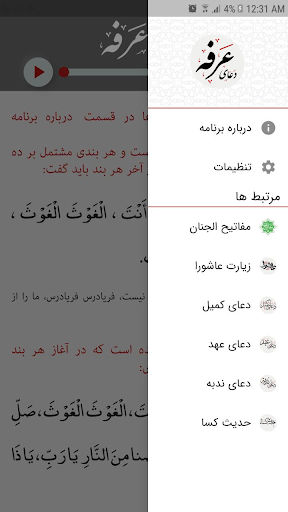 4% 12:31 AM
عرفه
دعای عرفه
درباره برنامه
تنظیمات
مرتبط ها
مفاتیح الجنان
زیارت عاشورا
دعای کمیل
دعای عهد
دعای ندبه
حدیث کسا
ها در قسمت درباره برنامه
است و هر بندی مشتمل بر ده
آخر هر بند باید گفت:
أَنْتَ ، الْغَوْثَ الْغَوْثَ ،
نیست، فریادرس فریادرس، ما را از
ده است که در آغاز هر بند
ی:
ت، الْغَوْثَ الْغَوْثَ، صَلِّ
صْنا مِنَ النَّارِ يَا رَبِّ، يَا ذَا